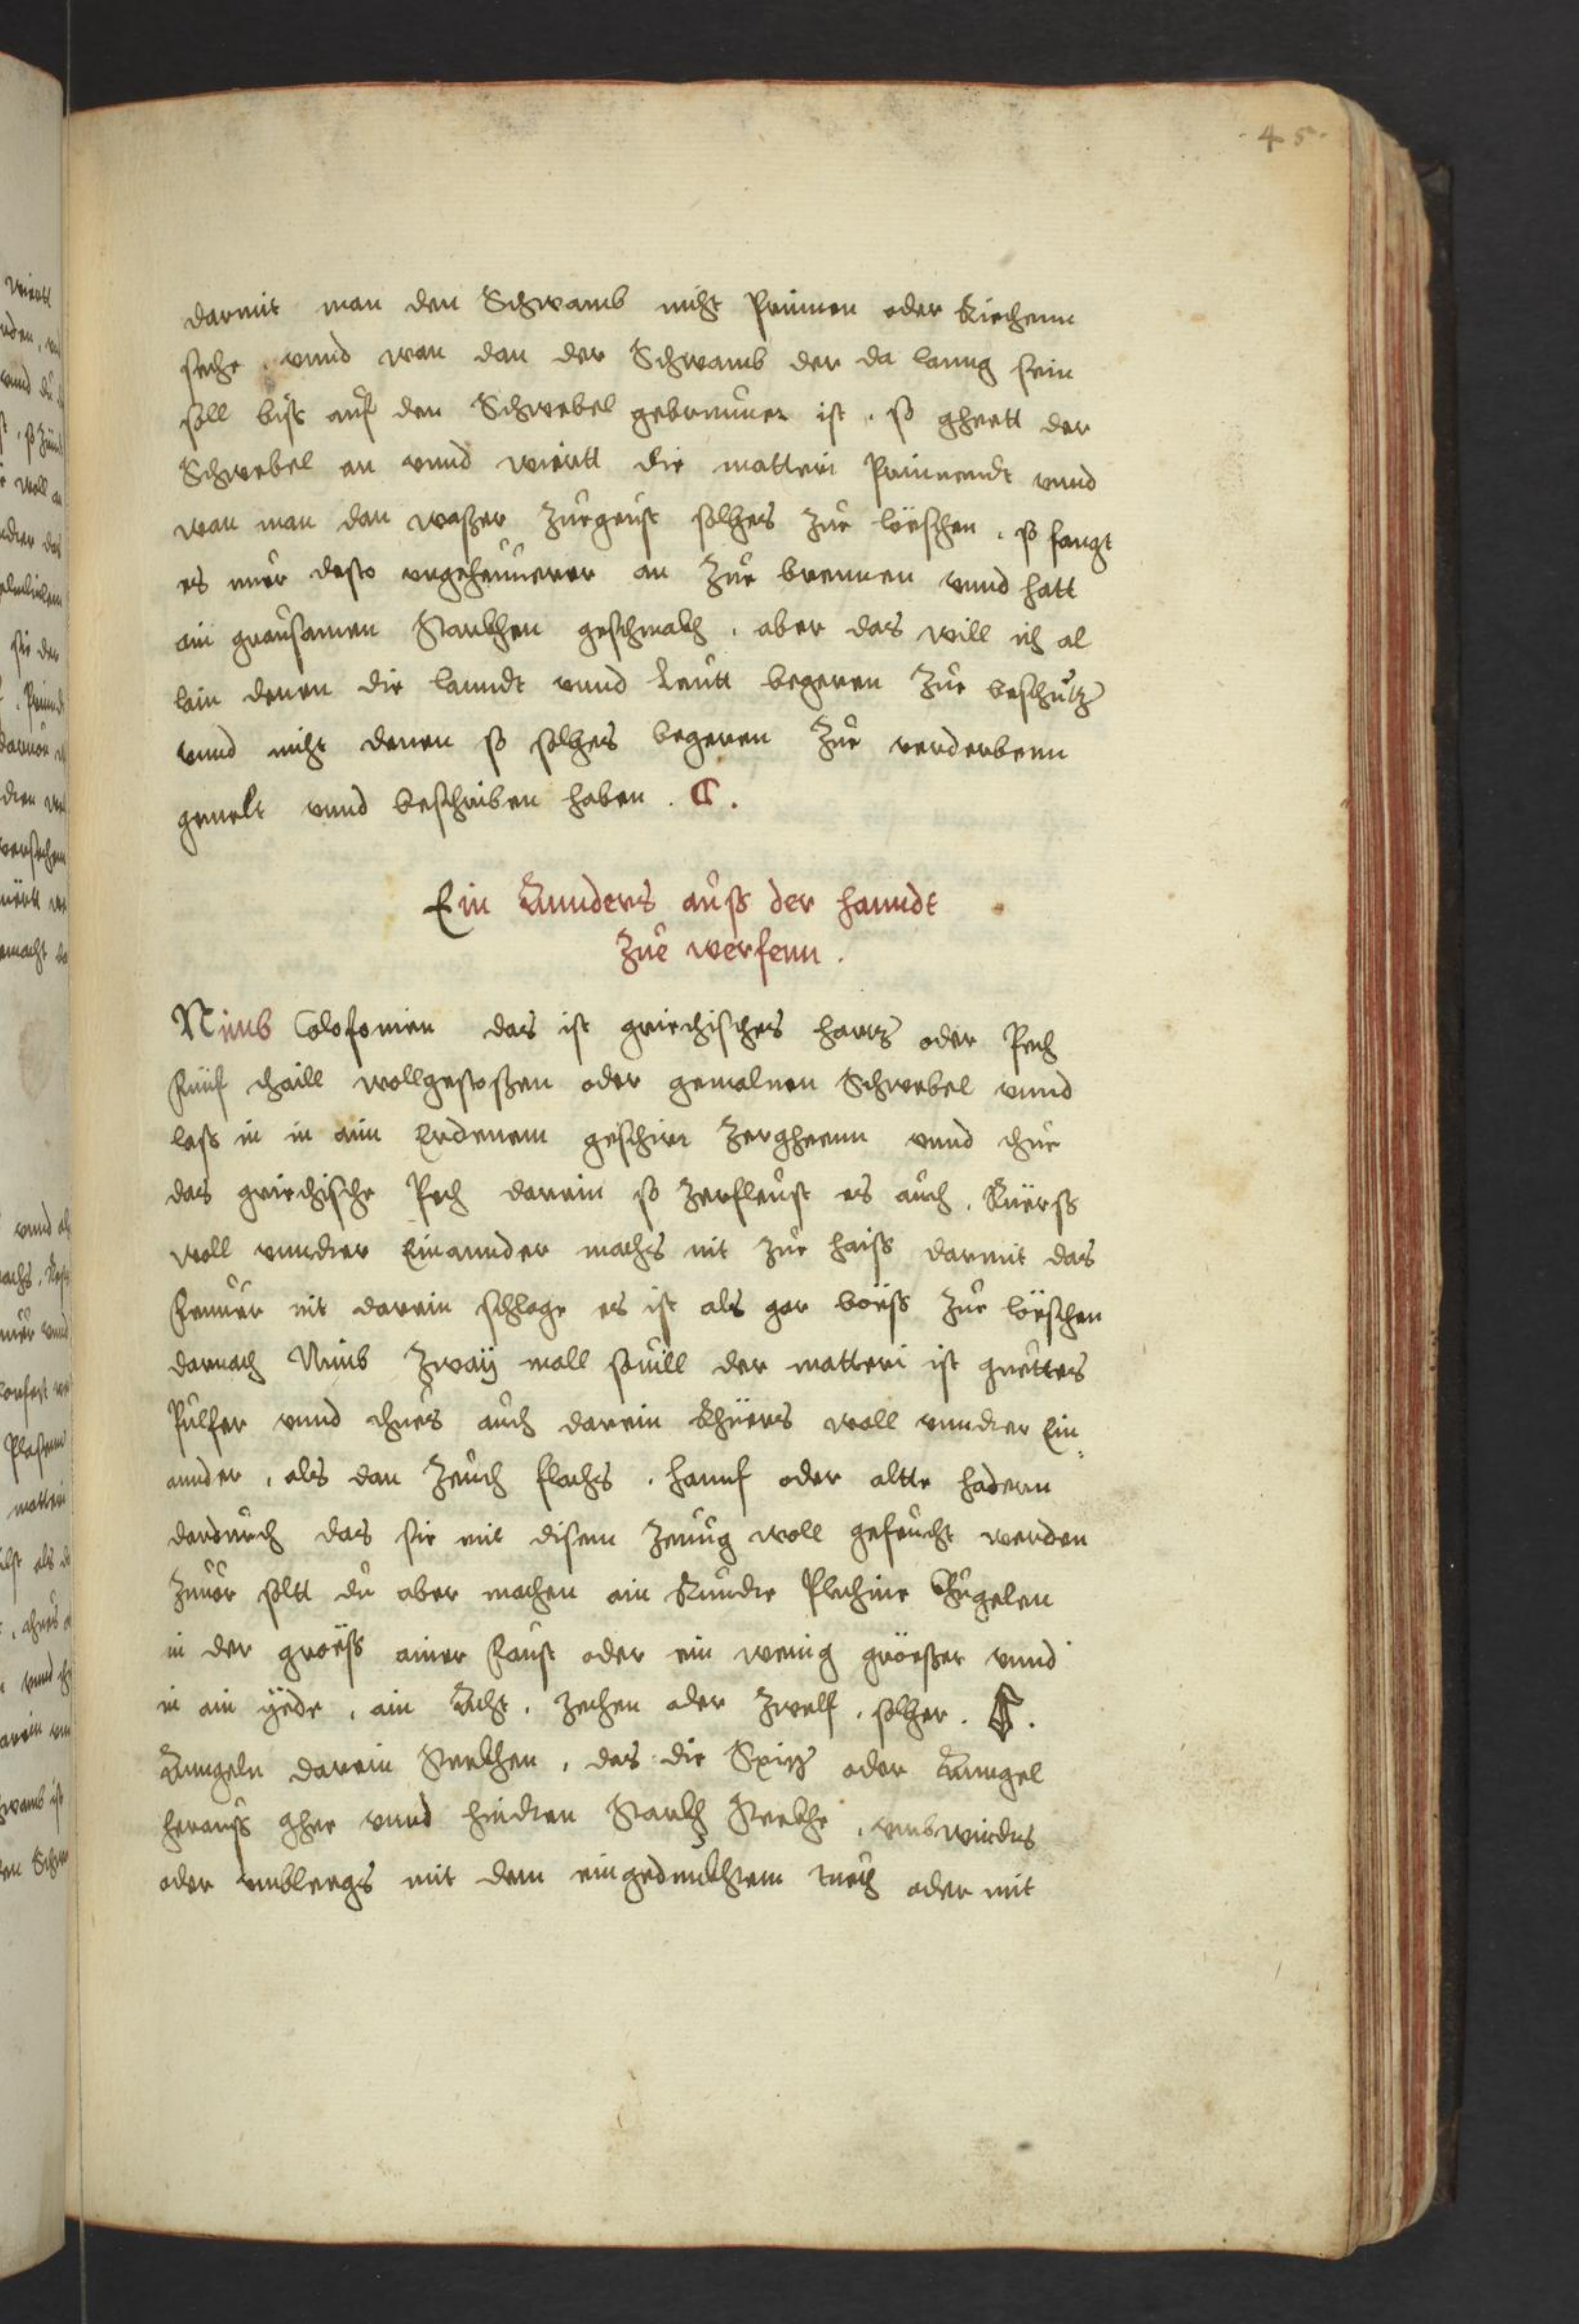 . 4 5 .
darmit man den Schwamb nicht Prinnen oder Riechenn
seche . vnnd wan dan der Schwamb der da lanng sein
soll biss auf den Schwebel gebrunnen ist . so gheett der
Schwebel an vnnd wiertt die matteri Prinnendt vnnd
wan man dan wasser zuegeust solhes zue löschen . so fangt
es nuer desto vngeheuwerer an zue brennen vnnd hatt
ain grausamen Starkhen geschmakh . aber das will ich al
lain denen die lanndt vnnd Leutt begeren zue beschutz
vnnd nicht denen so solhes begeren zue verderbenn
gemelt vnnd beschriben haben .
Ein Annders auss der hanndt
zue werfenn .
Nimb Colofonien das ist griechisches hartz oder Pech
Fünf thaill wollgestossen oder gemalnen Schwebel vnnd
lass in in aim Erdenem geschirr zergheenn vnnd thue
das griechische Pech darein so zerfleust es auch . Rüerss
woll vnndter Einannder machs nit zue haiss darmit das
Feuuer nit darein schlage es ist als gar böess zue löschen
darnach Nimb zwaÿ mall souill der matteri ist guettes
Pulfer vnnd thues auch darein Rhüers woll vnndter Ein=
annder . als dan zeuch flachs . hannf oder altte hadern
dardurch das sie mit disem zeuug woll gefeucht werden
zuuor soltt du aber machen ain Runde Plechine Kugelen
in der gröess ainer Faust oder ein wenig gröesser vnnd
in ain ÿede . ain Acht . zechen oder zwelf . solher .
Anngeln darein Stekhen . das die Spitz oder Anngel
herauss ghee vnnd hindten Starkh Stekhe . vmbwindes
oder vmbleegs mit dem eingedunkhtem tuech oder mit